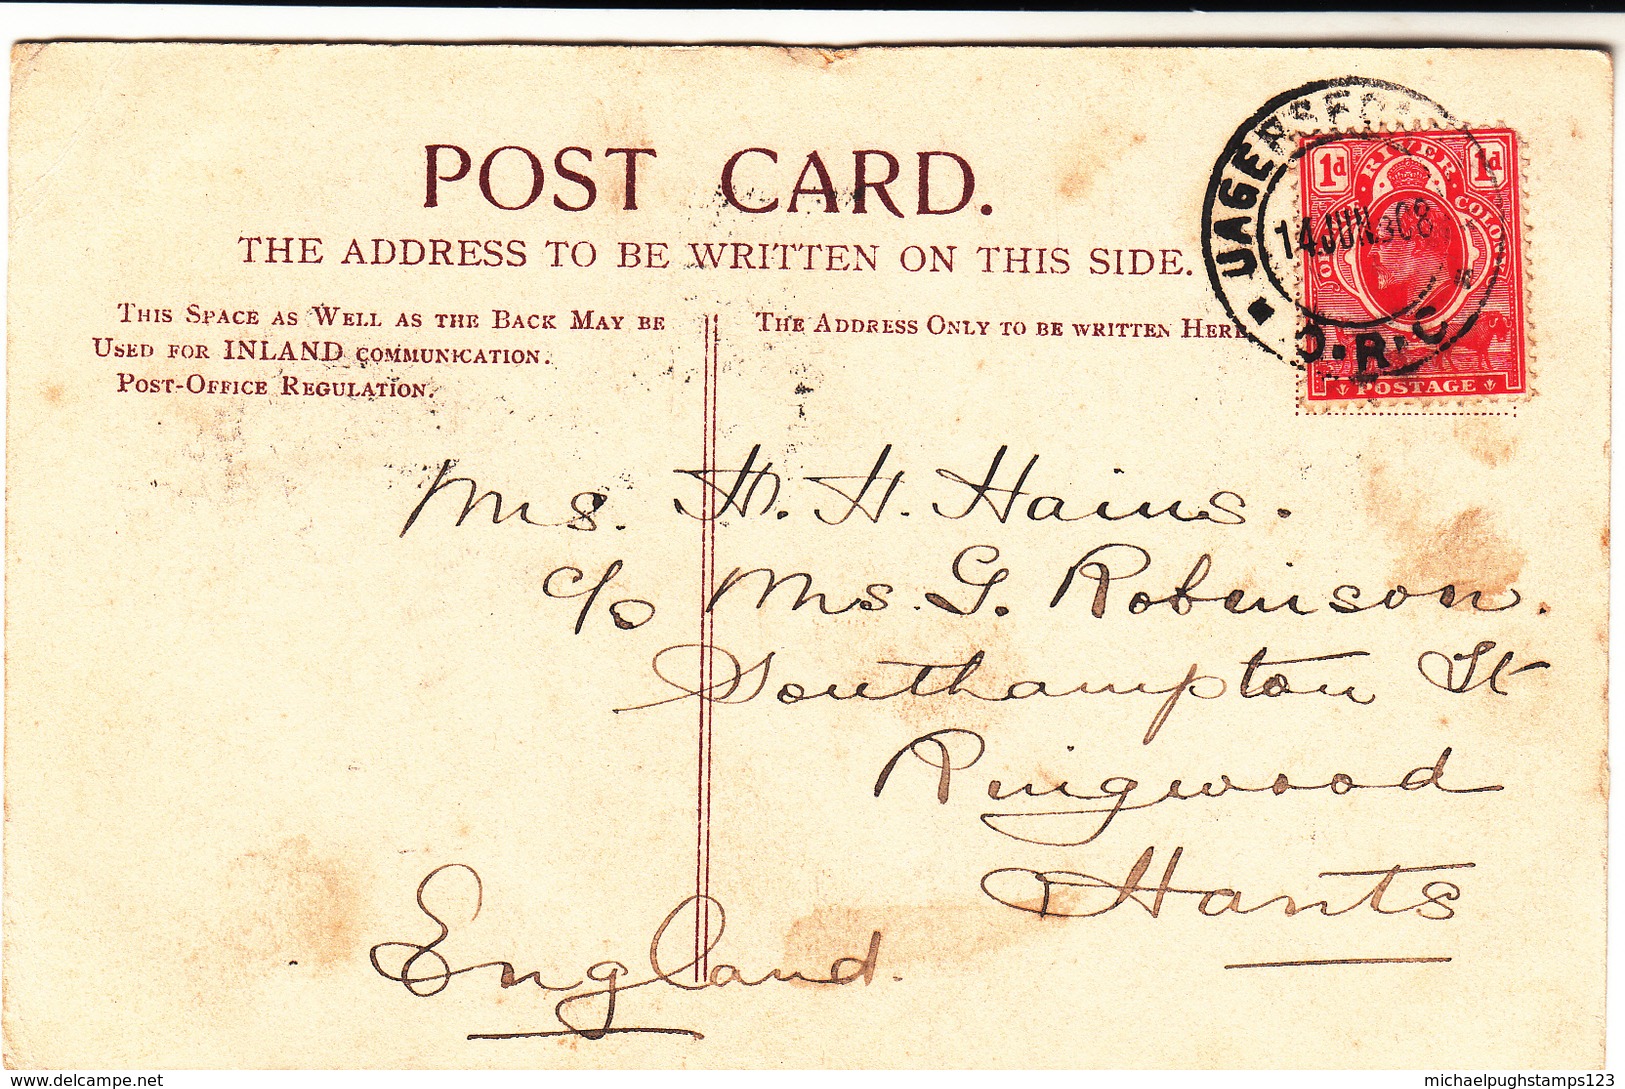 POST CARD.
THE ADDRESS TO BE WRITTEN ON THIS SIDE.
THIS SPACE AS WELL AS THE BACK MAY BE
USED FOR INLAND COMMUNICATION.
POST-OFFICE REGULATION.
THE ADDRESS ONLY TO BE WRITTEN HERE
14 JUN 08
O.R.C.
1d 1d
RIVER COLONY
POSTAGE
Mrs. H. H. Hains.
c/o Mrs. G. Robinson.
Southampton St
Ringwood
Hants
England.
delcampe.net
michaelpughstamps123